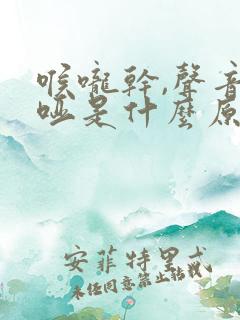 喉嚨幹,聲音
啞是什麼原
安菲特里忒
未經同意禁止轉載